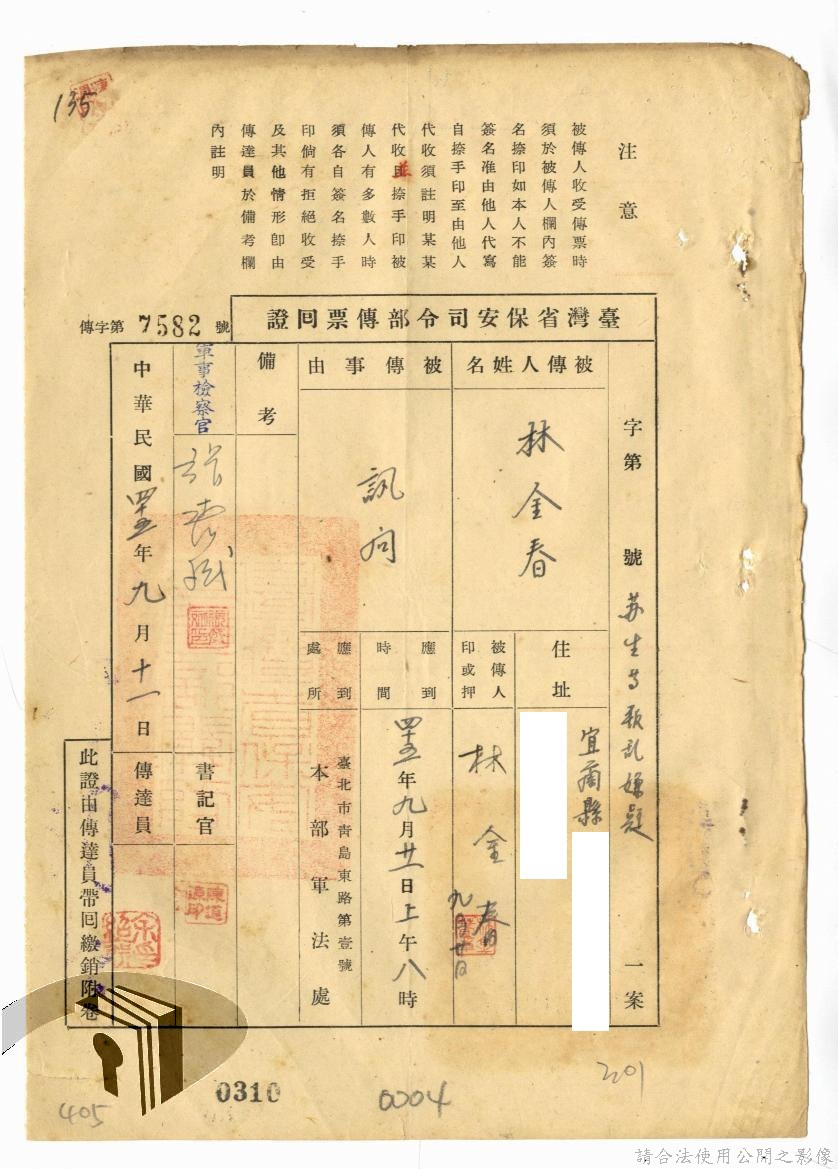 135
注意
被傳人收受傳票時
須於被傳人欄內簽
名捺印如本人不能
簽名准由他人代寫
自捺手印至由他人
代收須註明某某
代收並捺手印被
傳人有多數人時
須各自簽名捺手
印倘有拒絕收受
及其他情形卽由
傳達員於備考欄
內註明
臺灣省保安司令部傳票回證
傳字第7582號
字第 號 蘇生等叛亂嫌題 一案
被傳人姓名
林金春
住址
宜蘭縣
被傳人印或押
林金春
九月廿日
被傳事由
訊問
應到時間
四十五年九月廿一日上午八時
應到處所
臺北市靑島東路第壹號
本部軍法處
備考
軍事檢察官
書記官
中華民國四十五年九月十一日
傳達員
此證由傳達員帶回繳銷附卷
0310
0004
201
405
請合法使用公開之影像